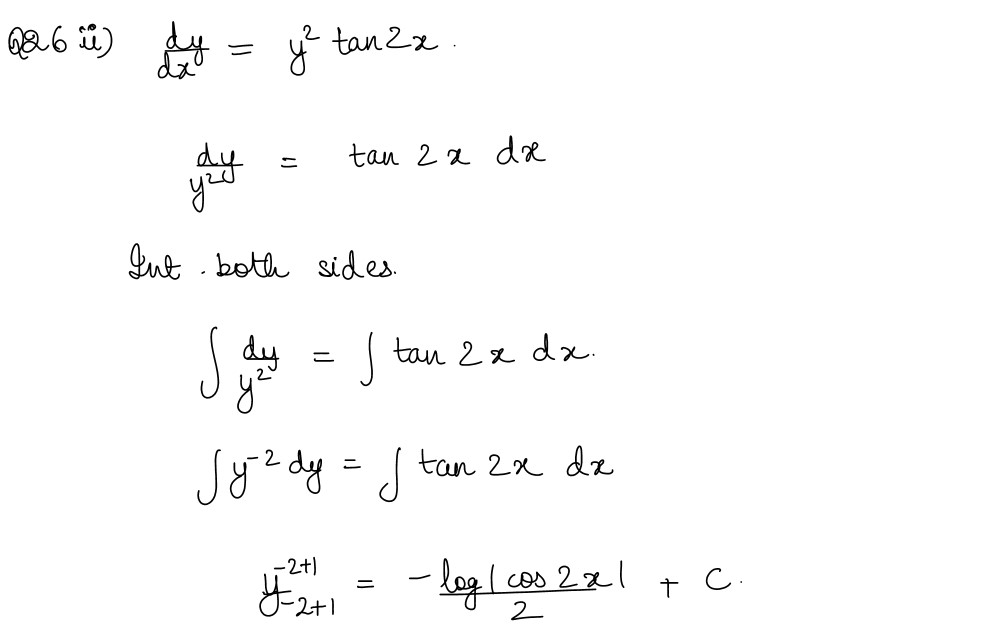 Q26 ii) dy/dx = y² tan2x.
dy/y² = tan 2x dx
Int. both sides.
∫ dy/y² = ∫ tan 2x dx.
∫ y⁻² dy = ∫ tan 2x dx
y⁻²⁺¹/-2+1 = -log|cos 2x|/2 + C.